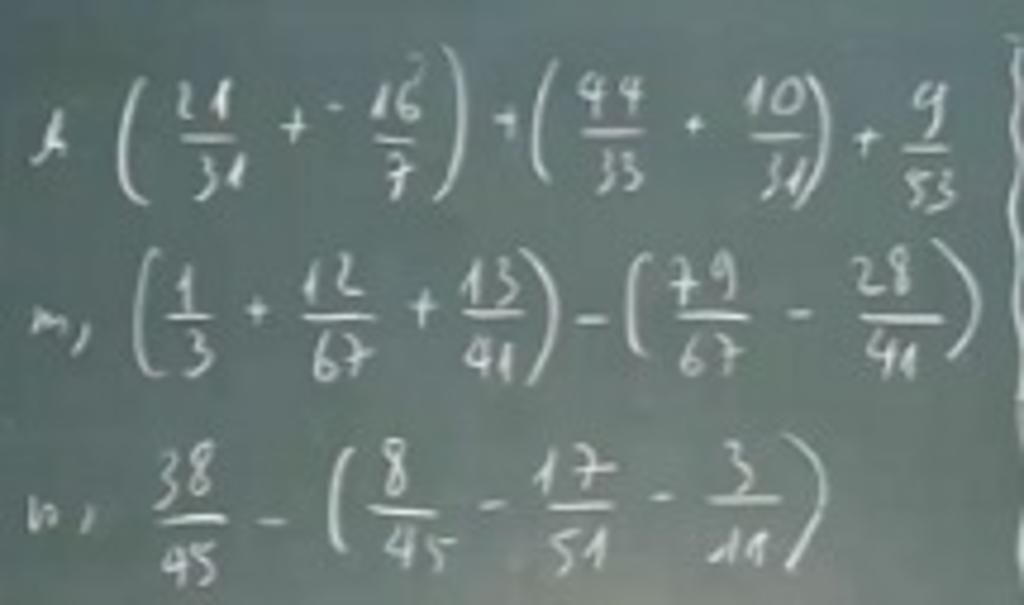 ( 21/31 + -16/7 ) + ( 44/33 + 10/31 ) + 9/53
m, ( 1/3 + 12/67 + 13/41 ) - ( 79/67 - 28/41 )
n, 38/45 - ( 8/45 - 17/51 - 3/11 )